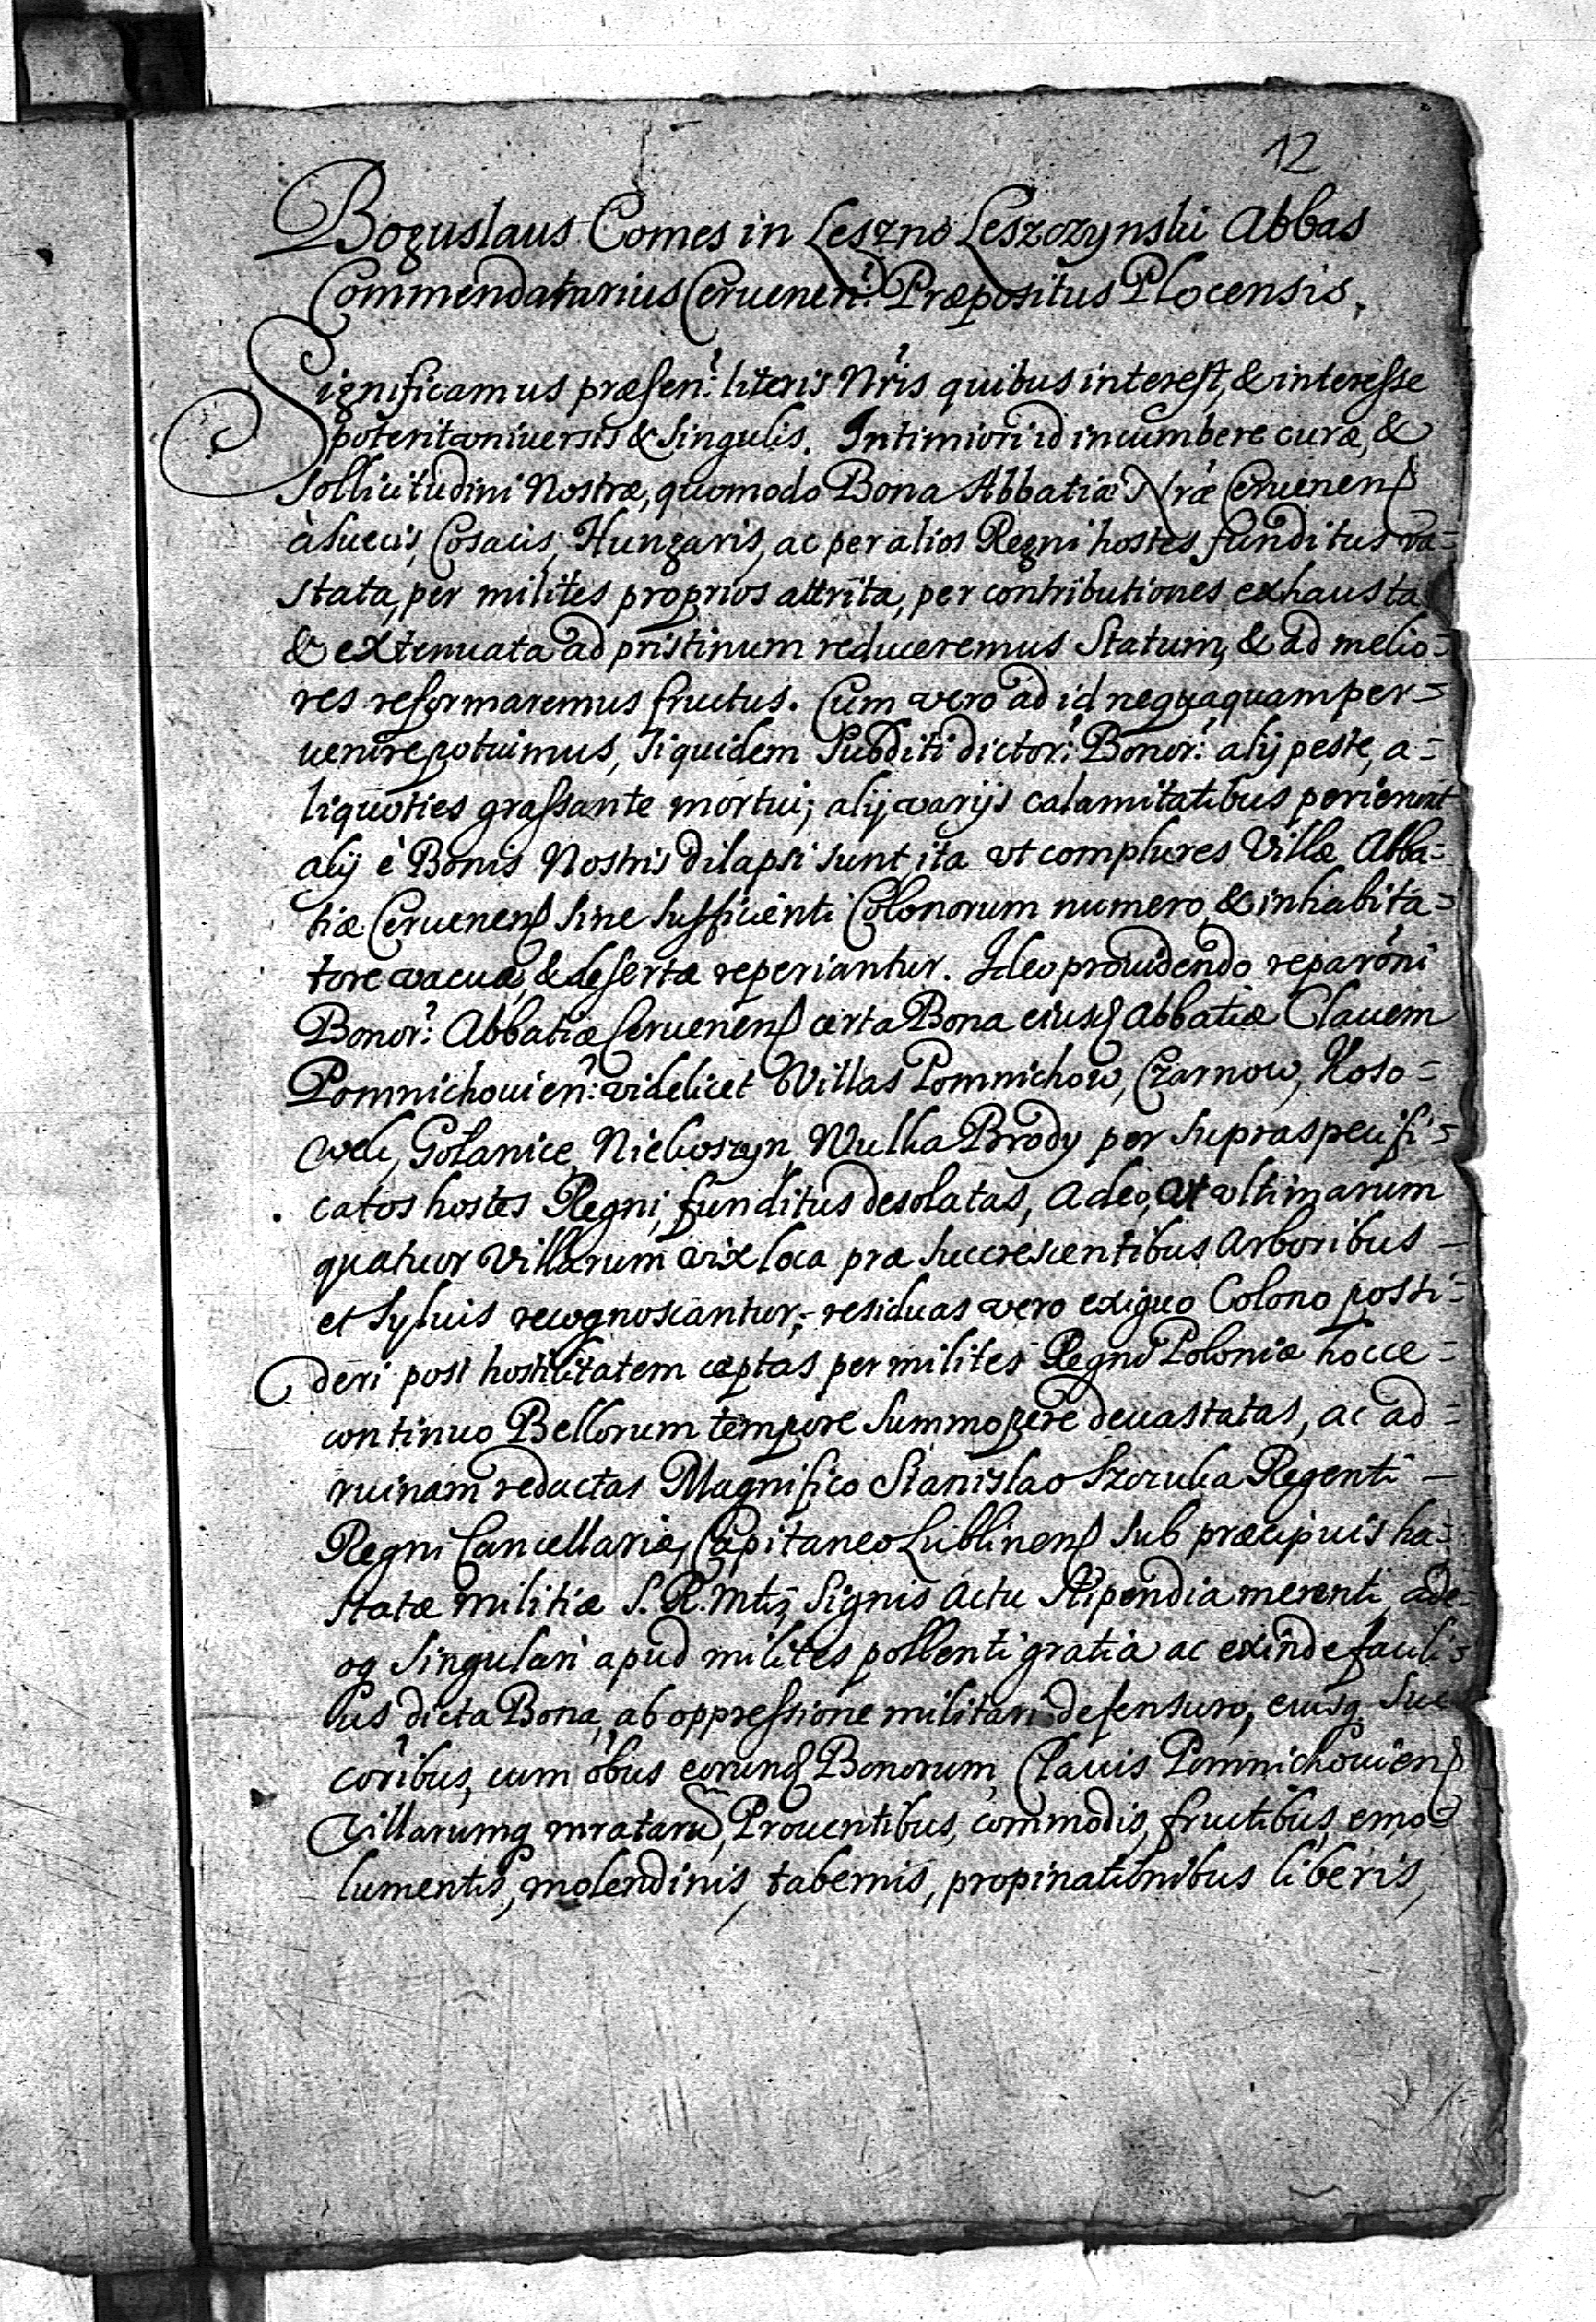 12
Boguslaus Comes in Leszno Leszczynski Abbas
Commendatarius Ceruenen: Præpositus Plocensis.
Significamus præsen: literis Nris quibus interest, & interesse
poterit vniuersis & singulis. Intimiori id incumbere curæ, &
sollicitudini Nostræ, quomodo Bona Abbatiæ Nræ Ceruenens
à Suecis, Cosacis, Hungaris, ac per alios Regni hostes funditus va=
stata, per milites proprios attrita, per contributiones exhausta
& extenuata ad pristinum reduceremus Statum, & ad melio=
res reformaremus fructus. Cum vero ad id nequaquam per=
uenire potuimus, siquidem Subditi dictor: Bonor: alij peste, a=
liquoties grassante mortui; alij varijs calamitatibus perierunt
alij è Bonis Nostris dilapsi sunt, ita vt complures Villæ Abba=
tiæ Ceruenens sine sufficienti Colonorum numero, & inhabita=
tore vacuæ, & desertæ reperiantur. Ideo prouidendo reparoni
Bonor: Abbatiæ Ceruenens certa Bona eiusd Abbatiæ Clauem
Pomnichouien: videlicet Villas Pomnichow, Czarnow, Koso=
wek, Golanice, Niekoszyn, Wulka Brody per supraspecifi=
catos hostes Regni, funditus desolatas, adeo, vt vltimarum
quatuor Villarum vix loca præ succrescentibus Arboribus
et Syluis recognoscantur; residuas vero exiguo Colono possi=
deri post hostilitatem cæptas per milites Regni Poloniæ hocce=
continuo Bellorum tempore summopere deuastatas, ac ad=
ruinam redactas Magnifico Stanislao Szczuka Regenti
Regni Cancellariæ, Capitaneo Lublinens sub præcipuis ha=
statæ militiæ S. R. Mtis Signis actu stipendia merenti, ade=
oq singulari apud milites pollenti gratia ac exinde facili=
us dicta Bona, ab oppressione militari defensuro, eiusq Suc
coribus, cum obus eorund Bonorum, Clauis Pomnichouiens
Villarumq mratarum, Prouentibus, commodis, fructibus, emo=
lumentis, molendinis, tabernis, propinationibus liberis,